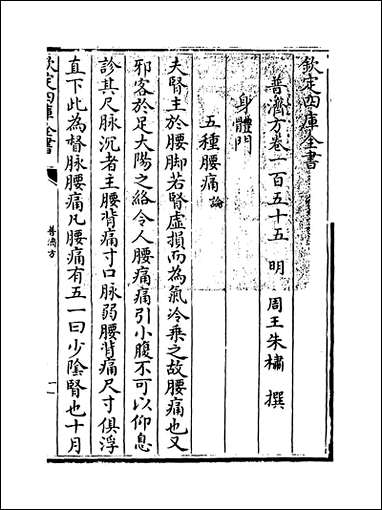 欽定四庫全書
普濟方卷一百五十五　明　周王朱橚　撰
身體門
五種腰痛論
夫腎主於腰脚若腎虛損而為氣冷乗之故腰痛也又
邪客於足太陽之絡令人腰痛痛引小腹不可以仰息
診其尺脉沉者主腰背痛寸口脉弱腰背痛尺寸俱浮
直下此為督脉腰痛凡腰痛有五一曰少隂腎也十月
欽定四庫全書
普濟方
一